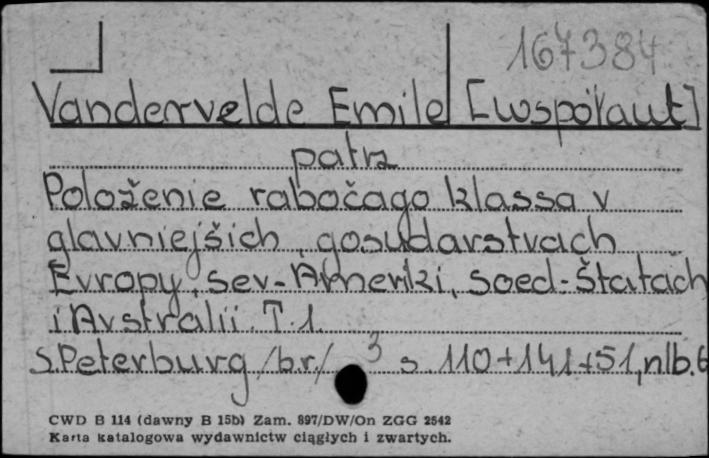 167384
Vandervelde Emile [współaut]
patrz
Położenie rabočago klassa v
glavniejšich, gosudarstvach
Evropy, sev-Ameriki, soed-Štatach
i Avstralii. T. 1.
S.Peterburg /b.r./ 3 s. 110+141+51, nlb. 6
CWD B 114 (dawny B 15b) Zam. 897/DW/On ZGG 2542
Karta katalogowa wydawnictw ciągłych i zwartych.